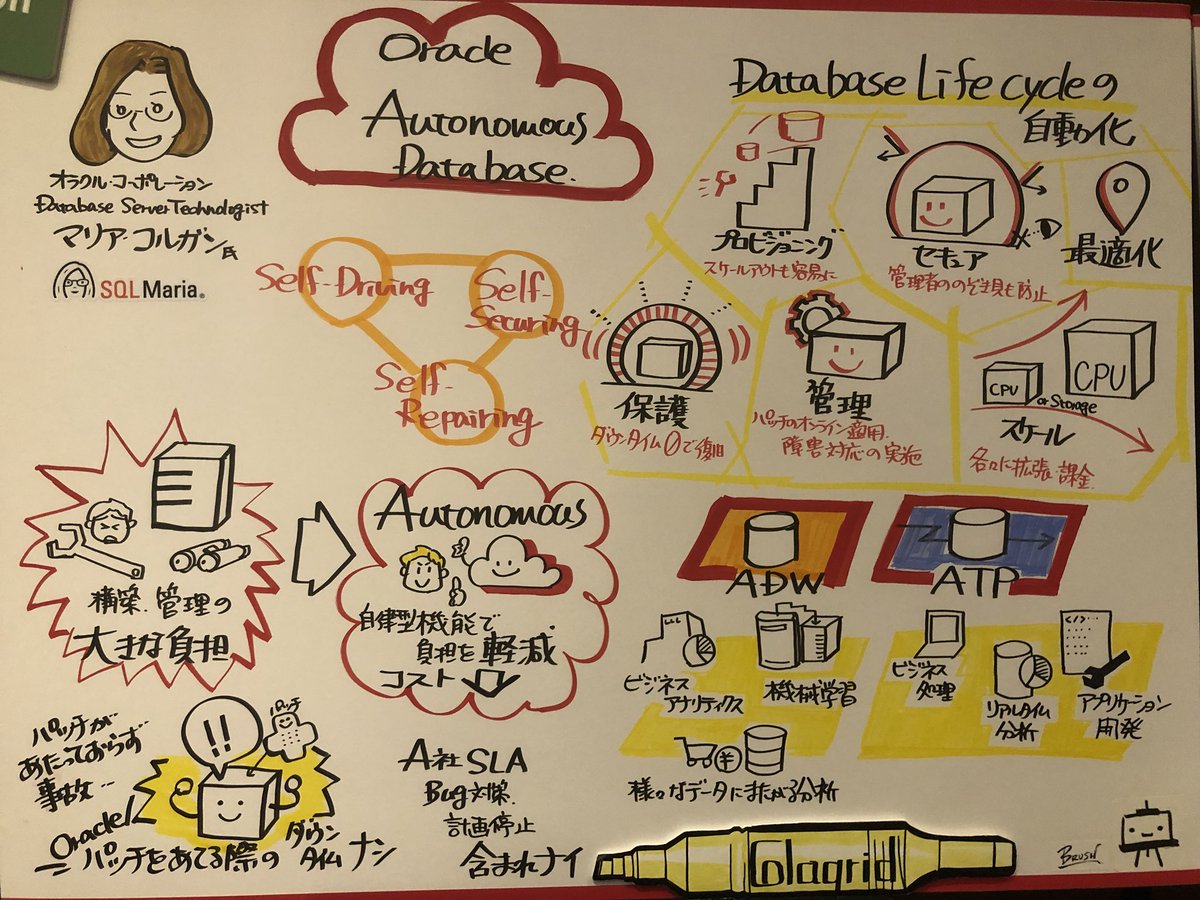 Oracle
Autonomous
Database.
オラクル・コーポレーション
Database Server Technologist
マリア・コルガン氏
SQL Maria.
Self-Driving
Self-
Securing
Self-
Repairing
Database Lifecycleの
自動化
プロビジョニング
スケールアウトも容易に
セキュア
管理者ののぞき見も防止
最適化
保護
ダウンタイム0で復旧
管理
パッチのオンライン適用.
障害対応の実施
CPU
or Storage
CPU
スケール
各々に拡張・課金
構築.管理の
大きな負担
Autonomous
自律型機能で
負担を軽減
コスト
ADW
ビジネス
アナリティクス
機械学習
様々なデータにまたがる分析
ATP
ビジネス
処理
リアルタイム
分析
</>
アプリケーション
開発
パッチが
あたっておらず
事故…
!!
パッチ
Oracle!
パッチをあてる際のダウンタイムナシ
A社SLA
Bug対策.
計画停止
含まれナイ
Colagrid
BRUSH